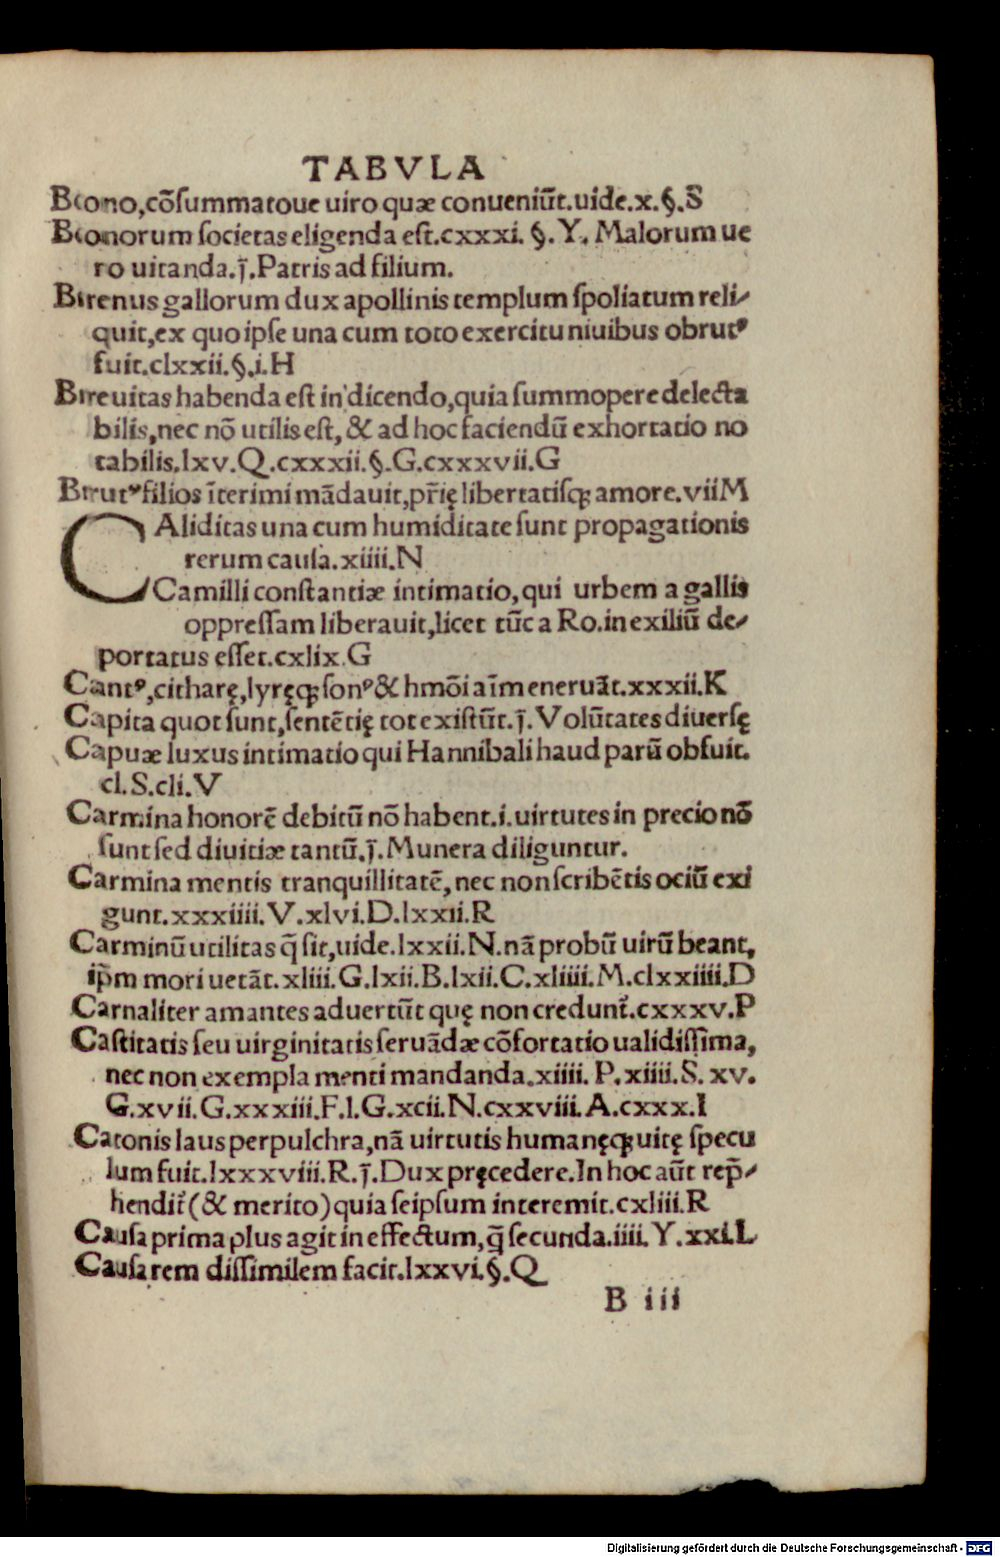 TABVLA
Bono,cõſummatoue uiro quæ conueniũt.uide.x.§.S
Bonorum ſocietas eligenda eſt.cxxxi. §. Y. Malorum ue
ro uitanda.j̄.Patris ad filium.
Brenus gallorum dux apollinis templum ſpoliatum reli⸗
quit,ex quo ipſe una cum toto exercitu niuibus obrutꝰ
fuit.clxxii.§.i.H
Breuitas habenda eſt in dicendo,quia ſummopere delecta
bilis,nec nõ utilis eſt, & ad hoc faciendũ exhortatio no
tabilis.lxv.Q.cxxxii.§.G.cxxxvii.G
Brutꝰ filios ĩterimi mãdauit,pr̃ię libertatiſqꝫ amore.viiM
CAliditas una cum humiditate ſunt propagationis
rerum cauſa.xiiii.N
Camilli conſtantiæ intimatio,qui urbem a gallis
oppreſſam liberauit,licet tũc a Ro.in exiliũ de⸗
portatus eſſet.cxlix.G
Cantꝰ,citharę,lyręqꝫ ſonꝰ & hmõi aĩm eneruãt.xxxii.K
Capita quot ſunt,ſentẽtię tot exiſtũt.j̄.Volũtates diuerſę
Capuæ luxus intimatio qui Hannibali haud parũ obfuit.
cl.S.cli.V
Carmina honorẽ debitũ nõ habent.i.uirtutes in precio nõ
ſunt ſed diuitiæ tantũ.j̄.Munera diliguntur.
Carmina mentis tranquillitatẽ,nec non ſcribẽtis ociũ exi
gunt.xxxiiii.V.xlvi.D.lxxii.R
Carminũ utilitas q̃ ſit,uide.lxxii.N.nã probũ uirũ beant,
ip̃m mori uetãt.xliii.G.lxii.B.lxii.C.xliiii.M.clxxiiii.D
Carnaliter amantes aduertũt quę non credunt᷑.cxxxv.P
Caſtitatis ſeu uirginitatis ſeruãdæ cõfortatio ualidiſſima,
nec non exempla menti mandanda.xiiii. P.xiiii.S. xv.
G.xvii.G.xxxiii.F.l.G.xcii.N.cxxviii.A.cxxx.I
Catonis laus perpulchra,nã uirtutis humanęqꝫ uitę ſpecu
lum fuit.lxxxviii.R.j̄.Dux pręcedere.In hoc aũt rep̃⸗
hendit᷑ (& merito) quia ſeipſum interemit.cxliii.R
Cauſa prima plus agit in effectum,q̃ ſecunda.iiii.Y.xxi.L
Cauſa rem diſſimilem facit.lxxvi.§.Q
B iii
Digitalisierung gefördert durch die Deutsche Forschungsgemeinschaft - DFG